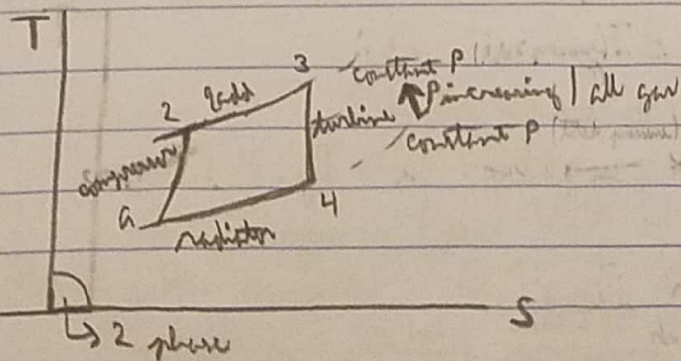 T
3
constant P
2 qadd
P increasing | all gas
turbine
constant P
compressor
a
radiator
4
S
2 phase